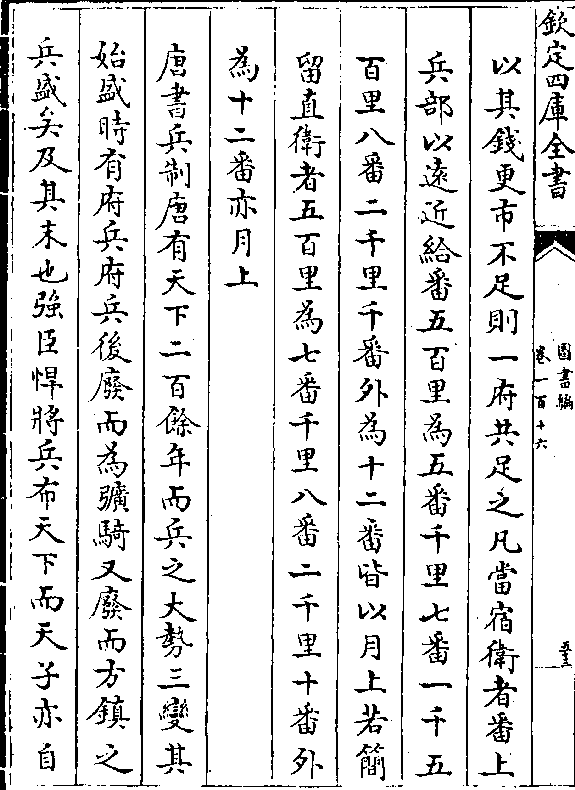 欽定四庫全書
圖書編
卷一百十六
至
以其錢更市不足則一府共足之凡當宿衛者番上
兵部以遠近給番五百里為五番千里七番一千五
百里八番二千里千番外為十二番皆以月上若簡
留直衛者五百里為七番千里八番二千里十番外
為十二番亦月上
唐書兵制唐有天下二百餘年而兵之大勢三變其
始盛時有府兵府兵後廢而為彍騎又廢而方鎮之
兵盛矣及其末也強臣悍將兵布天下而天子亦自